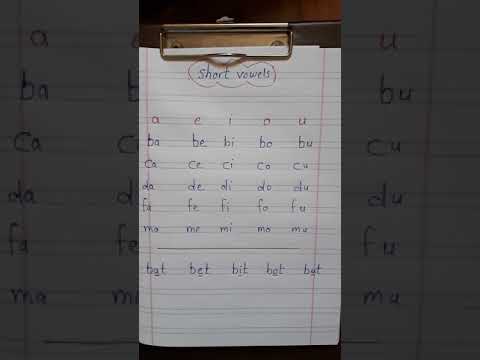 Short vowels
a e i o u
ba be bi bo bu
ca ce ci co cu
da de di do du
fa fe fi fo fu
ma me mi mo mu
bat bet bit bot but